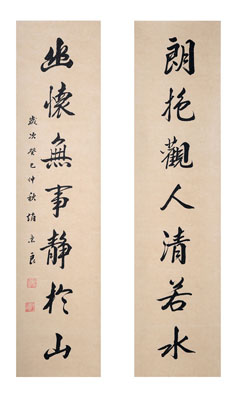 朗抱觀人清若水
幽懷無事靜於山
歲次癸巳仲秋